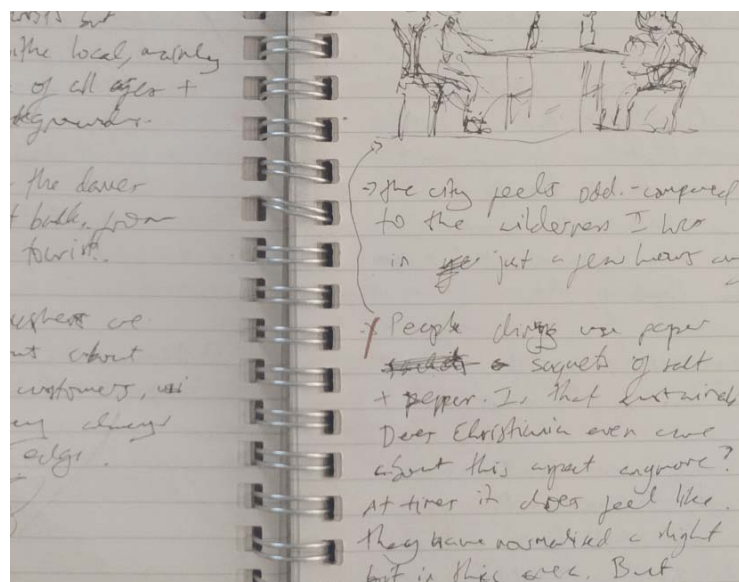 but
the local, mainly
of all ages +
the
back, from
tourist.
about
customers,
edge.
→ the city feels odd. - compared
to the wilderness I was
in just a few hours
People dining use paper
saquets of salt
+ pepper. Is that
Does Christiania even care
about this aspect anymore?
At times it does feel like
they have normalised a slight
but in this area. But